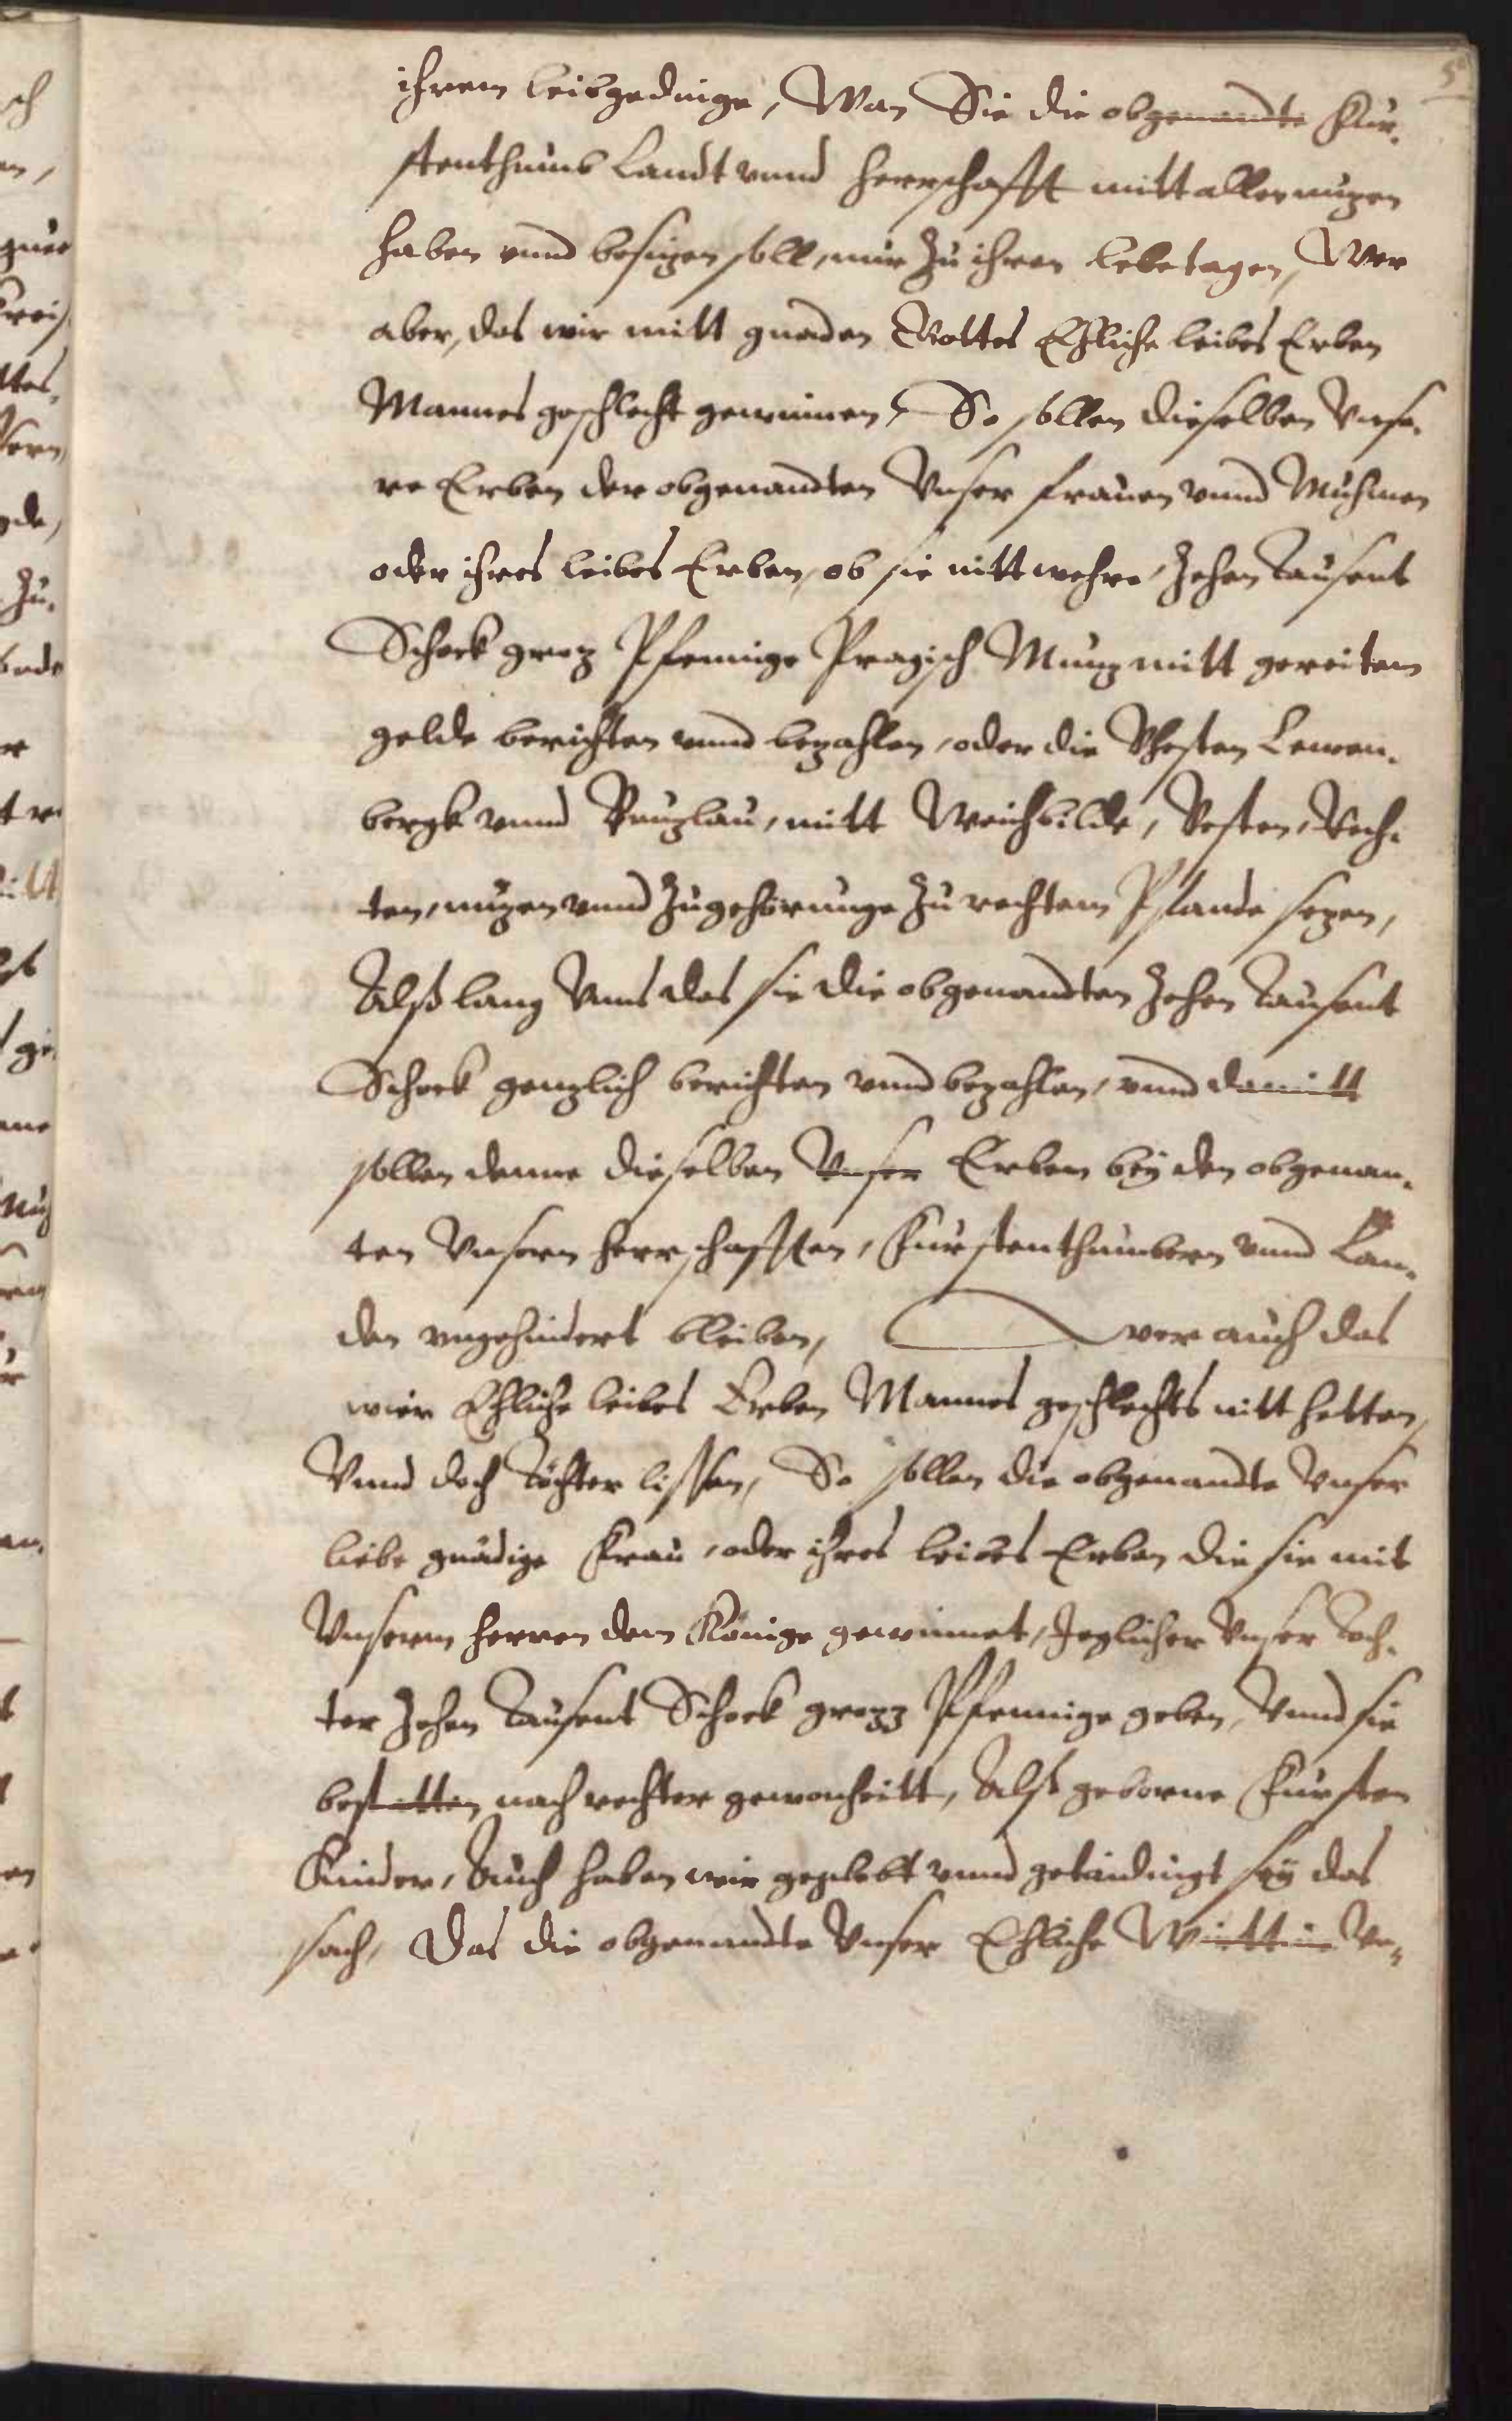 5
ihrem leibgedinge, Wan Sie die obgenandte Für-
stenthumb Landt vnnd herrschafft mitt allen nuzen
haben vnnd besizen soll, nur zu ihren lebetagen, Wer
aber, das wir mitt gnaden Gottes Ehliche leibes Erben
Mannes geschlecht gewinnen, So sollen dieselben Vnse-
re Erben der obgenandten Vnser frauen vnnd Muhmen
oder ihres leibes Erben, ob sie nitt wehre, Zehen Tausent
Schock groz Pfennige Pragisch Munz mitt gereitem
gelde berichten vnnd bezahlen, oder die Vhesten Lewen-
bergk vnnd Bunzlau, mitt Weichbilde, Vesten, Rech-
ten, nuzen vnnd Zugehörunge zu rechtem Pfande sezen,
Alß lang vns das sie die obgenandten Zehen Tausent
Schock genzlich berichten vnnd bezahlen, vnnd damitt
sollen denne dieselben Vnser Erben bey den obgenan-
ten Vnsern herrschafften, Fürstenthumbern vnnd Lan-
den vngehindert bleiben, wer auch das
wier Ehliche leibes Erben Mannes geschlechts nitt hetten,
Vnnd doch Töchter lissen, So sollen die obgenandte Vnser
liebe gnädige Frau, oder ihres leibes Erben die sie mit
Vnserm herren dem Könige gewinnet, Jeglicher Vnser Toch-
ter Zehen Tausent Schock grozz Pfennige geben, Vnnd sie
bestatten nach rechter gewonheitt, Alß geborne Fürsten
Kinder, Auch haben wir gegelobt vnnd geteidingt sey das
sach, Das die obgenandte Vnser Ehliche Wirttin Ve-